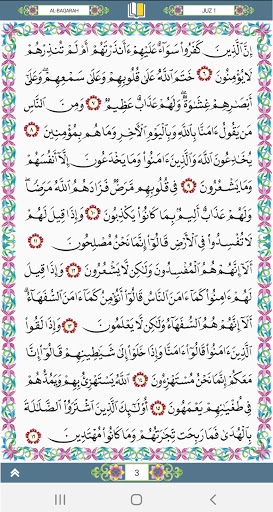 AL-BAQARAH JUZ 1
إِنَّ الَّذِينَ كَفَرُوا سَوَآءٌ عَلَيْهِمْ ءَأَنذَرْتَهُمْ أَمْ لَمْ تُنذِرْهُمْ
لَا يُؤْمِنُونَ ٦ خَتَمَ اللَّهُ عَلَىٰ قُلُوبِهِمْ وَعَلَىٰ سَمْعِهِمْ وَعَلَىٰ
أَبْصَٰرِهِمْ غِشَٰوَةٌ وَلَهُمْ عَذَابٌ عَظِيمٌ ٧ وَمِنَ النَّاسِ
مَن يَقُولُ ءَامَنَّا بِاللَّهِ وَبِالْيَوْمِ الْءَاخِرِ وَمَا هُم بِمُؤْمِنِينَ ٨
يُخَٰدِعُونَ اللَّهَ وَالَّذِينَ ءَامَنُوا وَمَا يَخْدَعُونَ إِلَّآ أَنفُسَهُمْ
وَمَا يَشْعُرُونَ ٩ فِى قُلُوبِهِم مَّرَضٌ فَزَادَهُمُ اللَّهُ مَرَضًا
وَلَهُمْ عَذَابٌ أَلِيمٌۢ بِمَا كَانُوا يَكْذِبُونَ ١٠ وَإِذَا قِيلَ لَهُمْ
لَا تُفْسِدُوا فِى الْأَرْضِ قَالُوٓا إِنَّمَا نَحْنُ مُصْلِحُونَ ١١
أَلَآ إِنَّهُمْ هُمُ الْمُفْسِدُونَ وَلَٰكِن لَّا يَشْعُرُونَ ١٢ وَإِذَا قِيلَ
لَهُمْ ءَامِنُوا كَمَآ ءَامَنَ النَّاسُ قَالُوٓا أَنُؤْمِنُ كَمَآ ءَامَنَ السُّفَهَآءُ
أَلَآ إِنَّهُمْ هُمُ السُّفَهَآءُ وَلَٰكِن لَّا يَعْلَمُونَ ١٣ وَإِذَا لَقُوا
الَّذِينَ ءَامَنُوا قَالُوٓا ءَامَنَّا وَإِذَا خَلَوْا إِلَىٰ شَيَٰطِينِهِمْ قَالُوٓا إِنَّا
مَعَكُمْ إِنَّمَا نَحْنُ مُسْتَهْزِءُونَ ١٤ اللَّهُ يَسْتَهْزِئُ بِهِمْ وَيَمُدُّهُمْ
فِى طُغْيَٰنِهِمْ يَعْمَهُونَ ١٥ أُولَٰٓئِكَ الَّذِينَ اشْتَرَوُا الضَّلَٰلَةَ
بِالْهُدَىٰ فَمَا رَبِحَت تِّجَٰرَتُهُمْ وَمَا كَانُوا مُهْتَدِينَ ١٦
3